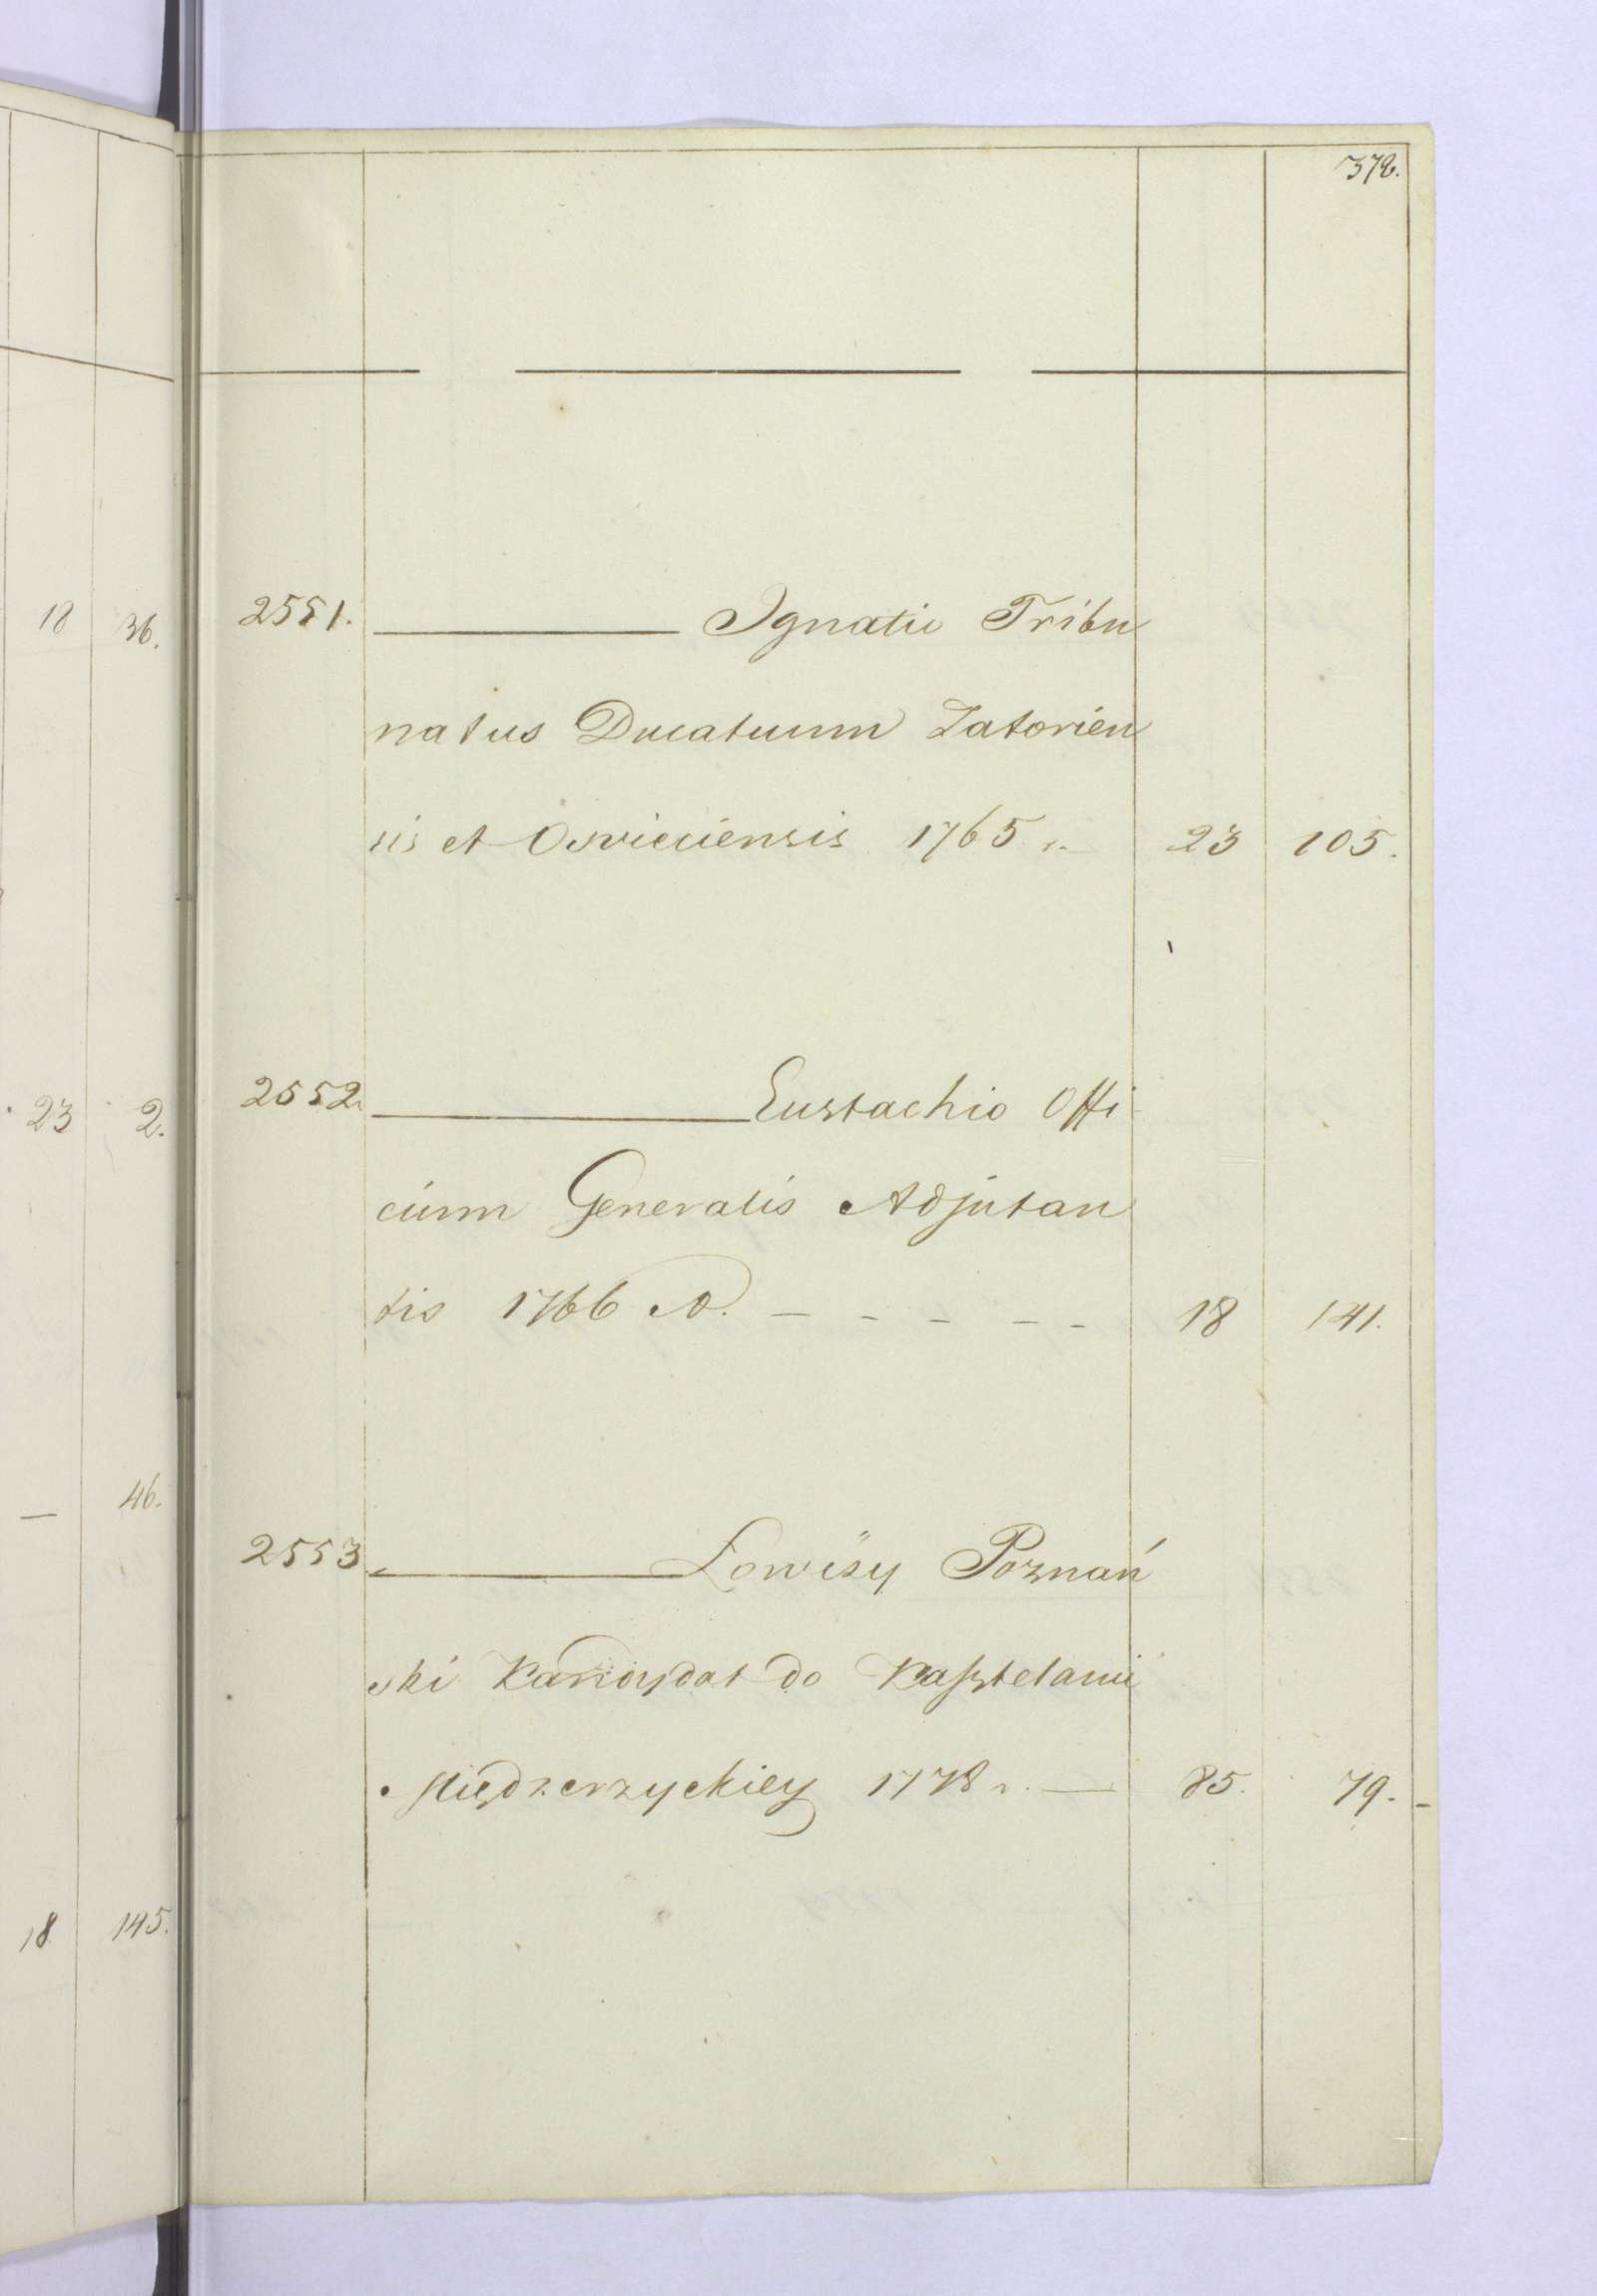 372.
18 36.
2551. Ignatio Tribu
natus Ducatuum Zatorien
sis et Osvieciensis 1765 r. 23 105.
23 2.
2552. Eustachio Offi
cium Generalis Adjutan
tis 1766 A. - - - - - 18 141.
— 46.
2553. Łowczy Poznań
ski Kandydat do Kasztelanii
Międzerzyckiey 1778 r. — 85. 79.-
18 145.